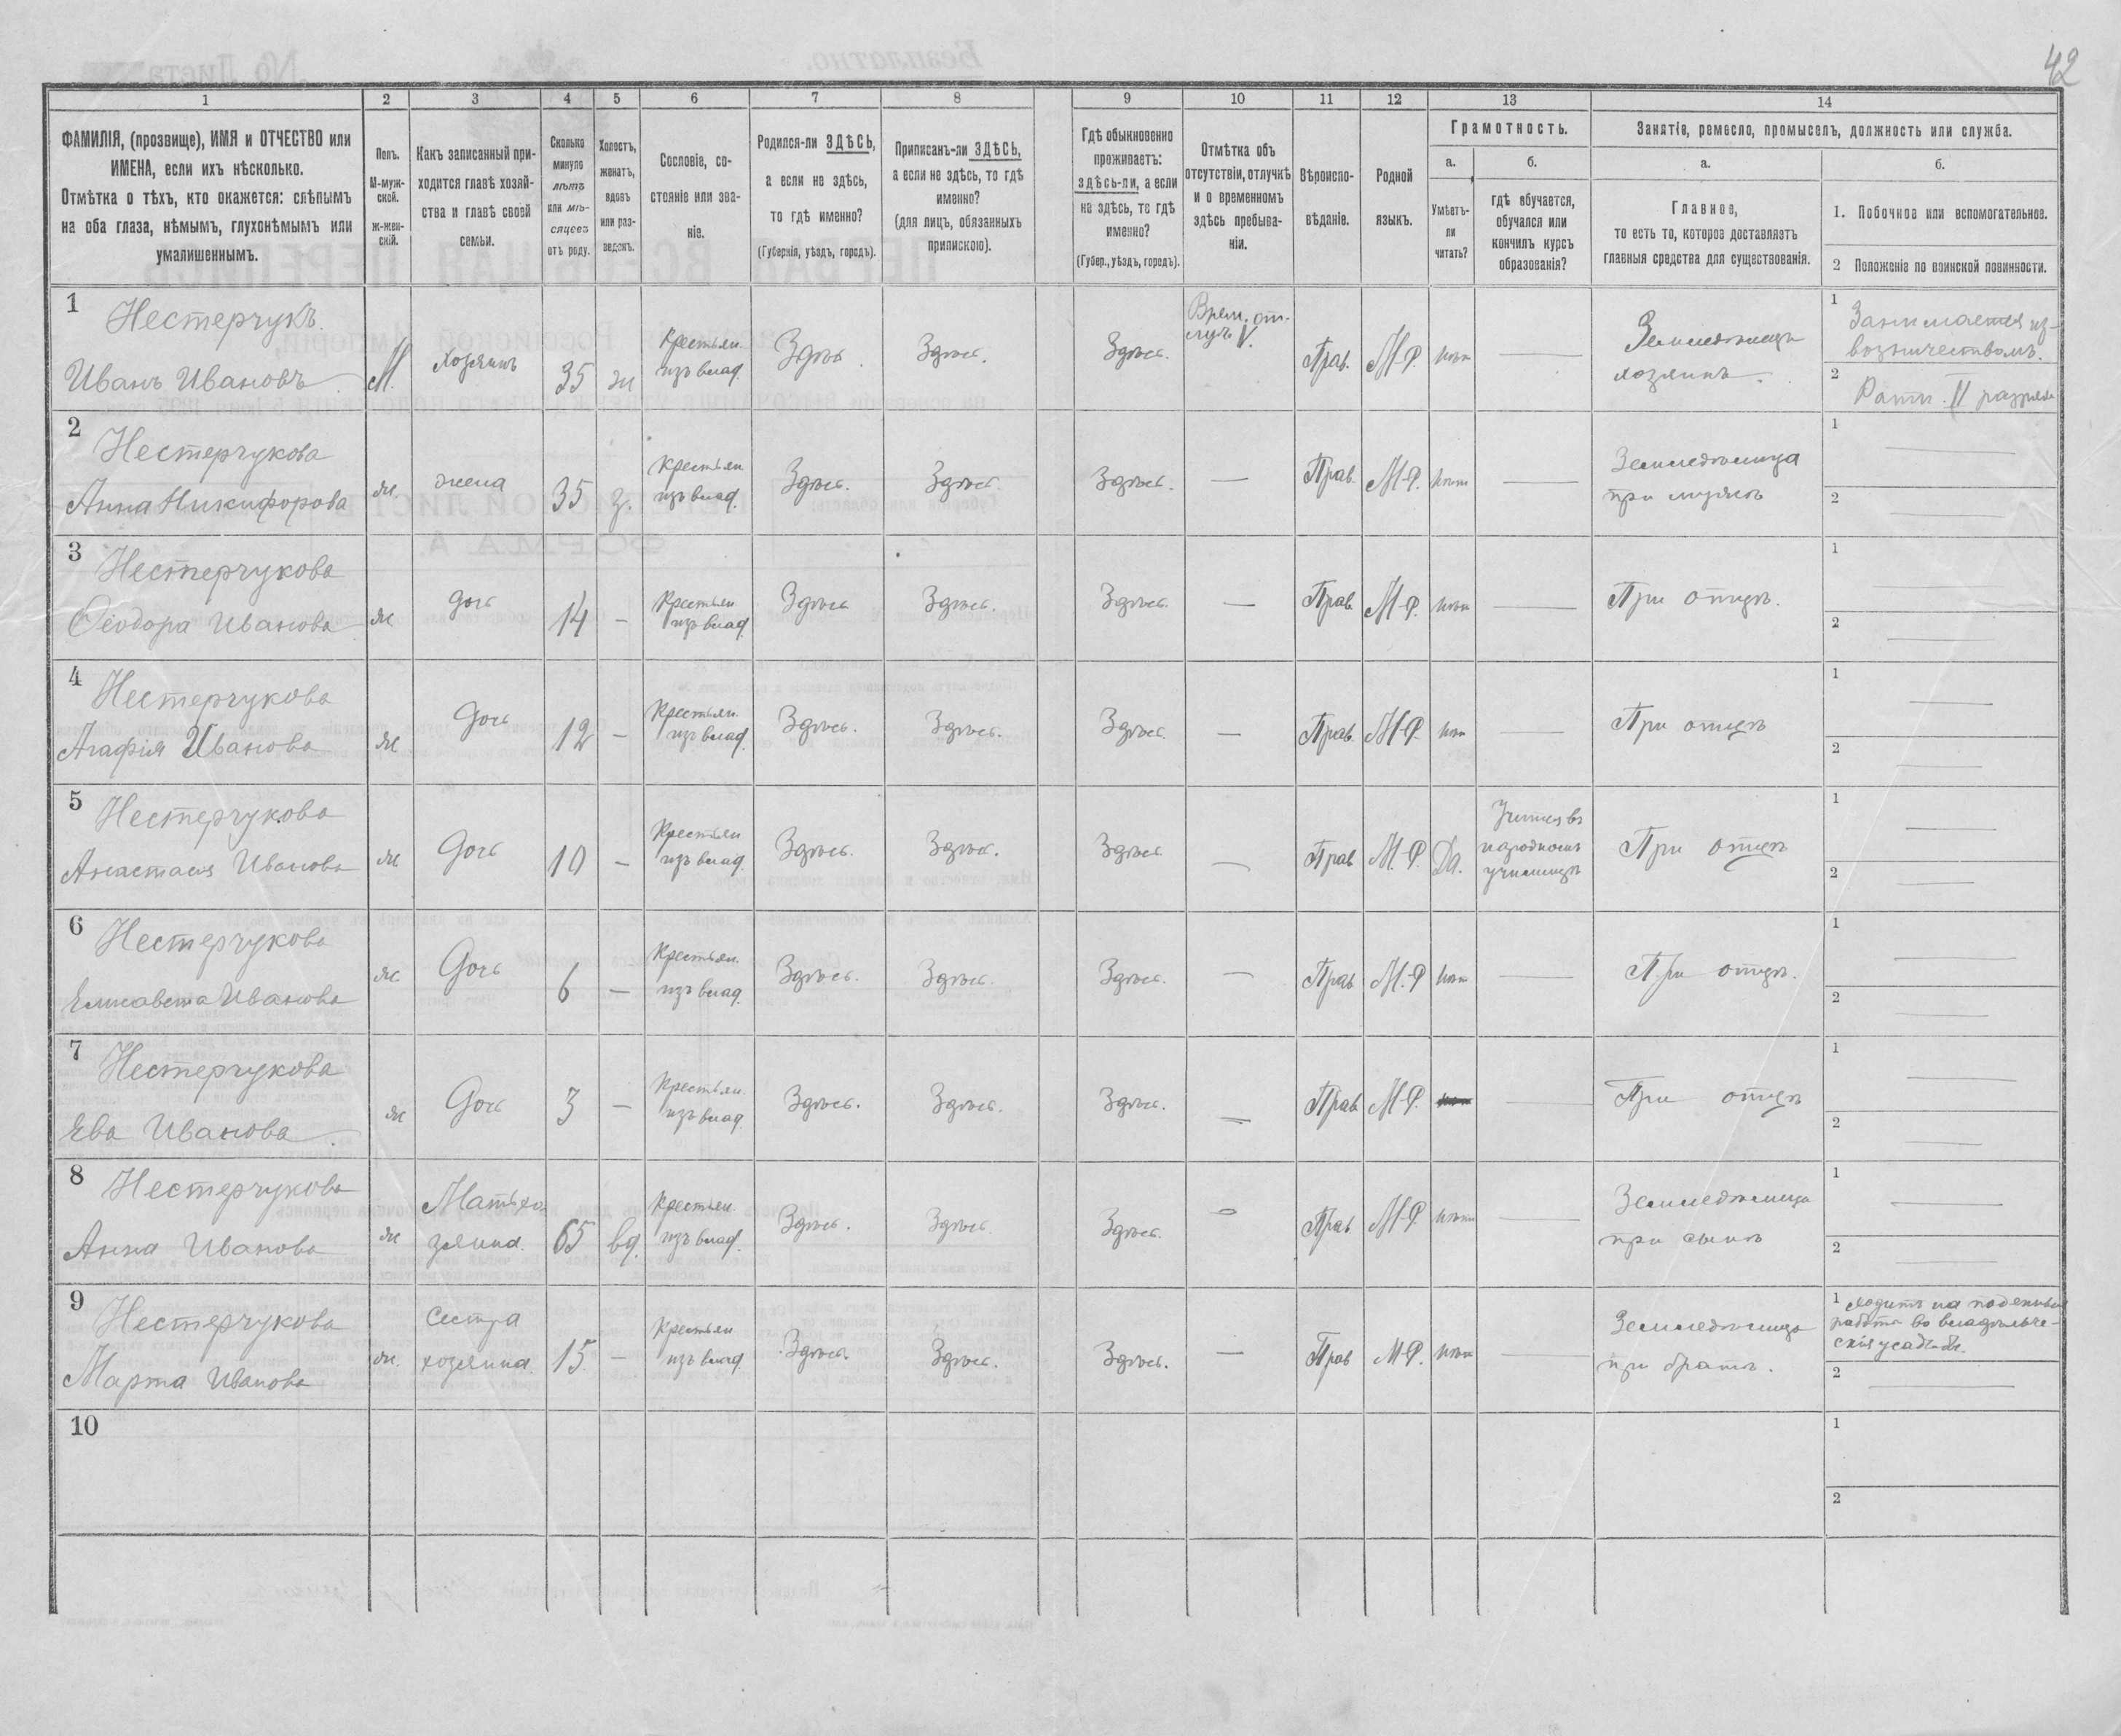 42
1 2 3 4 5 6 7 8 9 10 11 12 13 14
ФАМИЛІЯ, (прозвище), ИМЯ и ОТЧЕСТВО или
ИМЕНА, если ихъ нѣсколько.
Отмѣтка о тѣхъ, кто окажется: слѣпымъ
на оба глаза, нѣмымъ, глухонѣмымъ или
умалишеннымъ.
Полъ.
М-муж-
ской.
ж-жен-
скій.
Какъ записанный при-
ходится главѣ хозяй-
ства и главѣ своей
семьи.
Сколько
минуло
лѣтъ
или мѣ-
сяцевъ
отъ роду.
Холостъ,
женатъ,
вдовъ
или раз-
веденъ.
Сословіе, со-
стояніе или зва-
ніе.
Родился-ли ЗДѢСЬ,
а если не здѣсь,
то гдѣ именно?
(Губернія, уѣздъ, городъ).
Приписанъ-ли ЗДѢСЬ,
а если не здѣсь, то гдѣ
именно?
(для лицъ, обязанныхъ
припискою).
Гдѣ обыкновенно
проживаетъ:
здѣсь-ли, а если
не здѣсь, то гдѣ
именно?
(Губер., уѣздъ, городъ).
Отмѣтка объ
отсутствіи, отлучкѣ
и о временномъ
здѣсь пребыва-
ніи.
Вѣроиспо-
вѣданіе.
Родной
языкъ.
Грамотность.
а.
Умѣетъ-
ли
читать?
б.
гдѣ обучается,
обучался или
кончилъ курсъ
образованія?
Занятіе, ремесло, промыселъ, должность или служба.
а.
Главное,
то есть то, которое доставляетъ
главныя средства для существованія.
б.
1. Побочное или вспомогательное.
2 Положеніе по воинской повинности.
1 Нестерчукъ.
Иванъ Ивановъ
М.
хозяинъ
35
ж
Крестьян.
изъ влад.
Здѣсь
Здѣсь.
Здѣсь.
Врем. от-
луч. V.
Прав.
М-Р.
нѣтъ
Земледѣлецъ
хозяинъ.
1 Занимается из-
возничествомъ.
2 Ратн. II разряда
2 Нестерчукова
Анна Никифорова
ж.
жена
35
з.
Крестьян
изъ влад.
Здѣсь.
Здѣсь.
Здѣсь.
—
Прав.
М-Р.
нѣтъ
—
Земледѣлица
при мужѣ
1 —
2 —
3 Нестерчукова
Ѳеодора Иванова
ж
дочь
14
—
Крестьян
изъ влад.
Здѣсь
Здѣсь.
Здѣсь.
—
Прав.
М-Р.
нѣтъ
—
При отцѣ.
1 —
2 —
4 Нестерчукова
Агафія Иванова
ж
Дочь
12
—
Крестьян.
изъ влад.
Здѣсь.
Здѣсь.
Здѣсь.
—
Прав.
М-Р.
нѣт
—
При отцѣ
1 —
2 —
5 Нестерчукова
Анастасія Иванова
ж
Дочь
10
—
Крестьян
изъ влад.
Здѣсь.
Здѣсь.
Здѣсь
—
Прав
М.Р.
Да.
Учится въ
народномъ
училищѣ
При отцѣ
1 —
2 —
6 Нестерчукова
Елисавета Иванова
ж
Дочь
6
—
Крестьян.
изъ влад.
Здѣсь.
Здѣсь.
Здѣсь.
—
Прав
М.-Р
нѣт
—
При отцѣ.
1 —
2 —
7 Нестерчукова
Ева Иванова.
ж
Дочь
3
—
Крестьян.
изъ влад.
Здѣсь.
Здѣсь.
Здѣсь.
—
Прав
М-Р.
—
При отцѣ
1 —
2 —
8 Нестерчукова
Анна Иванова
ж
Мать хо-
зяина.
65
вд.
Крестьян.
изъ влад.
Здѣсь.
Здѣсь
Здѣсь.
—
Прав.
М-Р.
нѣтъ
—
Земледѣлица
при сынѣ
1 —
2 —
9 Нестерчукова
Марта Иванова
ж.
Сестра
хозяина.
15
—
Крестьян
изъ влад
Здѣсь.
Здѣсь.
Здѣсь.
—
Прав
М-Р.
нѣтъ
—
Земледѣлица
при братѣ.
1 ходитъ на поденныя
работы во владѣльче-
2 —
10
1
2